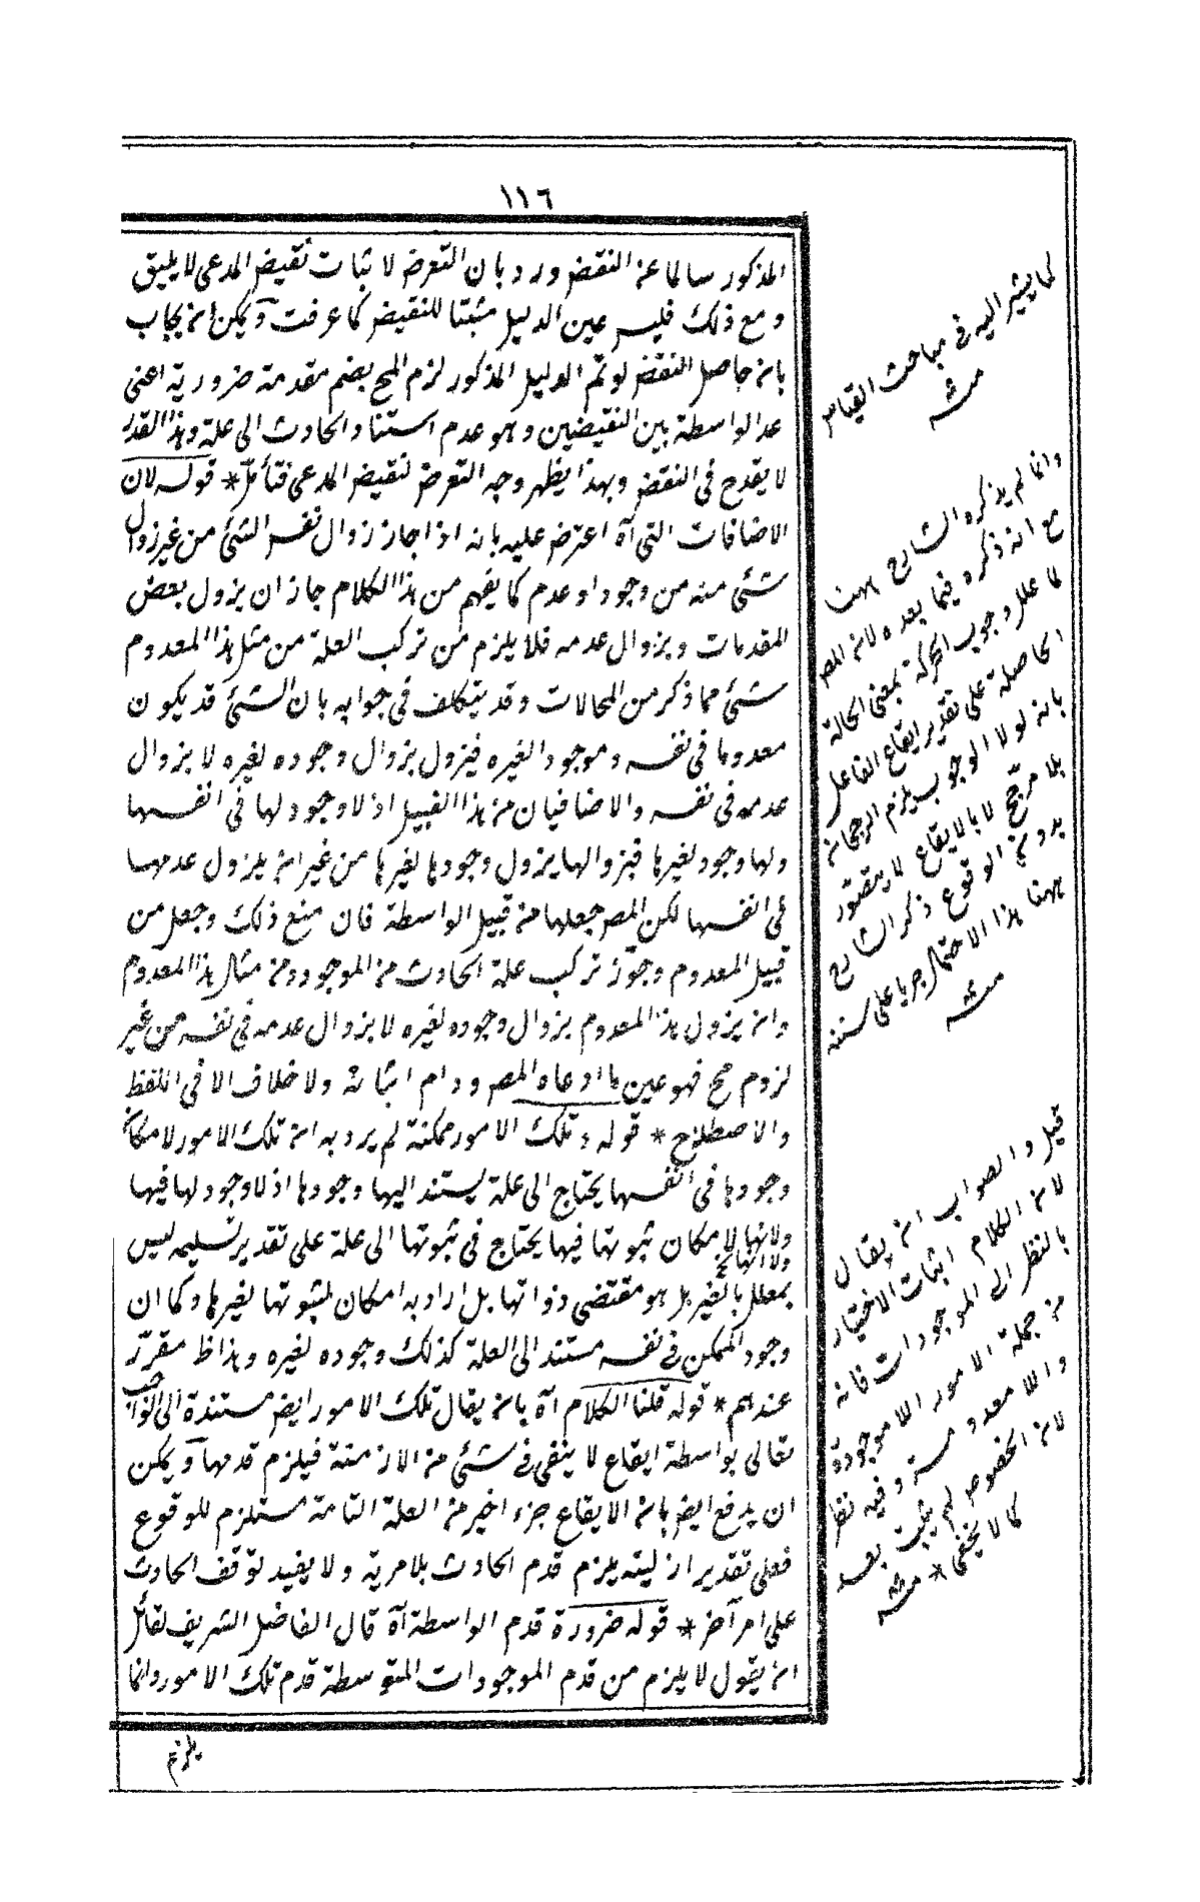 ١١٦
المذكور سالما عن النقض ورد بان التعرض لاثبات نقيض المدعى لا يليق
ومع ذلك فليس عين الدليل مثبتا للنقيض كما عرفت ويمكن ان يجاب
بان حاصل النقض لو تم الدليل المذكور لزم المح بضم مقدمة ضرورية اعنى
عد الواسطة بين النقيضين وهو عدم استناد الحادث الى علة وهذا القدر
لا يقدح فى النقض وبهذا يظهر وجه التعرض لنقيض المدعى فتأمل * قوله لان
الاضافات التى آه اعترض عليه بانه اذا جاز زوال نفس الشئ من غير زوال
شئ منه من وجود او عدم كما يفهم من هذا الكلام جاز ان يزول بعض
المقدمات وبزوال عدمه فلا يلزم من تركب العلة من مثل هذا المعدوم
شئ مما ذكر من المحالات وقد يتكلف فى جوابه بان الشئ قد يكون
معدوما فى نفسه وموجودا لغيره فيزول بزوال وجوده لغيره لا بزوال
عدمه فى نفسه والاضافيان من هذا القبيل اذ لا وجود لها فى انفسها
ولها وجود لغيرها فبزوالها يزول وجودها لغيرها من غير ان يزول عدمها
فى انفسها لكن المص جعلها من قبيل الواسطة فان منع ذلك وجعل من
قبيل المعدوم وجوّز تركب علة الحادث من الموجود ومن مثال هذا المعدوم
وان يزول هذا المعدوم بزوال وجوده لغيره لا بزوال عدمه فى نفسه من غير
لزوم مح فهو عين ما ادعاه المص ورام اثباته ولا خلاف الا فى اللفظ
والاصطلاح * قوله وتلك الامور ممكنة لم يرد به ان تلك الامور لامكان
وجودها فى انفسها يحتاج الى علة يستند اليها وجودها اذ لا وجود لها فيها
ولانها لامكان ثبوتها فيها يحتاج فى ثبوتها الى علة على تقدير تسليمه ليس
ولا انها نخ
بمعلل بالغير بل هو مقتضى ذواتها بل اراد به امكان لثبوتها لغيرها وكما ان
وجود الممكن فى نفسه مستند الى العلة كذلك وجوده لغيره وهذا ظ مقرّر
عندهم * قوله قلنا الكلام آه بان يقال تلك الامور ايض مستندة الى الواجب
تعالى بواسطة ايقاع لا ينفى فى شئ من الازمنة فيلزم قدمها ويمكن
ان يدفع ايض بان الايقاع جزء اخير من العلة التامة مستلزم للوقوع
فعلى تقدير ازليته يلزم قدم الحادث بلا مرية ولا يفيد توقف الحادث
على امر آخر * قوله ضرورة قدم الواسطة آه قال الفاضل الشريف لقائل
ان يقول لا يلزم من قدم الموجودات المتوسطة قدم تلك الامور وانما
يلزم
كما يشير اليه فى مباحث القياس
منه
وانما لم يذكره الشارح ههنا
مع انه ذكره فيما بعده لان المص
لما علل وجوب الحركة بمعنى الحالة
الحاصلة على تقدير ايقاع الفاعل
بانه لولا الوجوب يلزم الرجحان
بلا مرجّح لا بالايقاع لا يتصوّر
بدون الوقوع ذكر الشارح
ههنا هذا الاحتمال جريا على سننه
منه
قيل والصواب ان يقال
لان الكلام اثبات الاختيار
بالنظر الى الموجودات فانه
من جملة الامور اللاموجودة
واللامعدومة وفيه نظر
لان الخصوم لم يثبت بعد
كما لا يخفى * منه